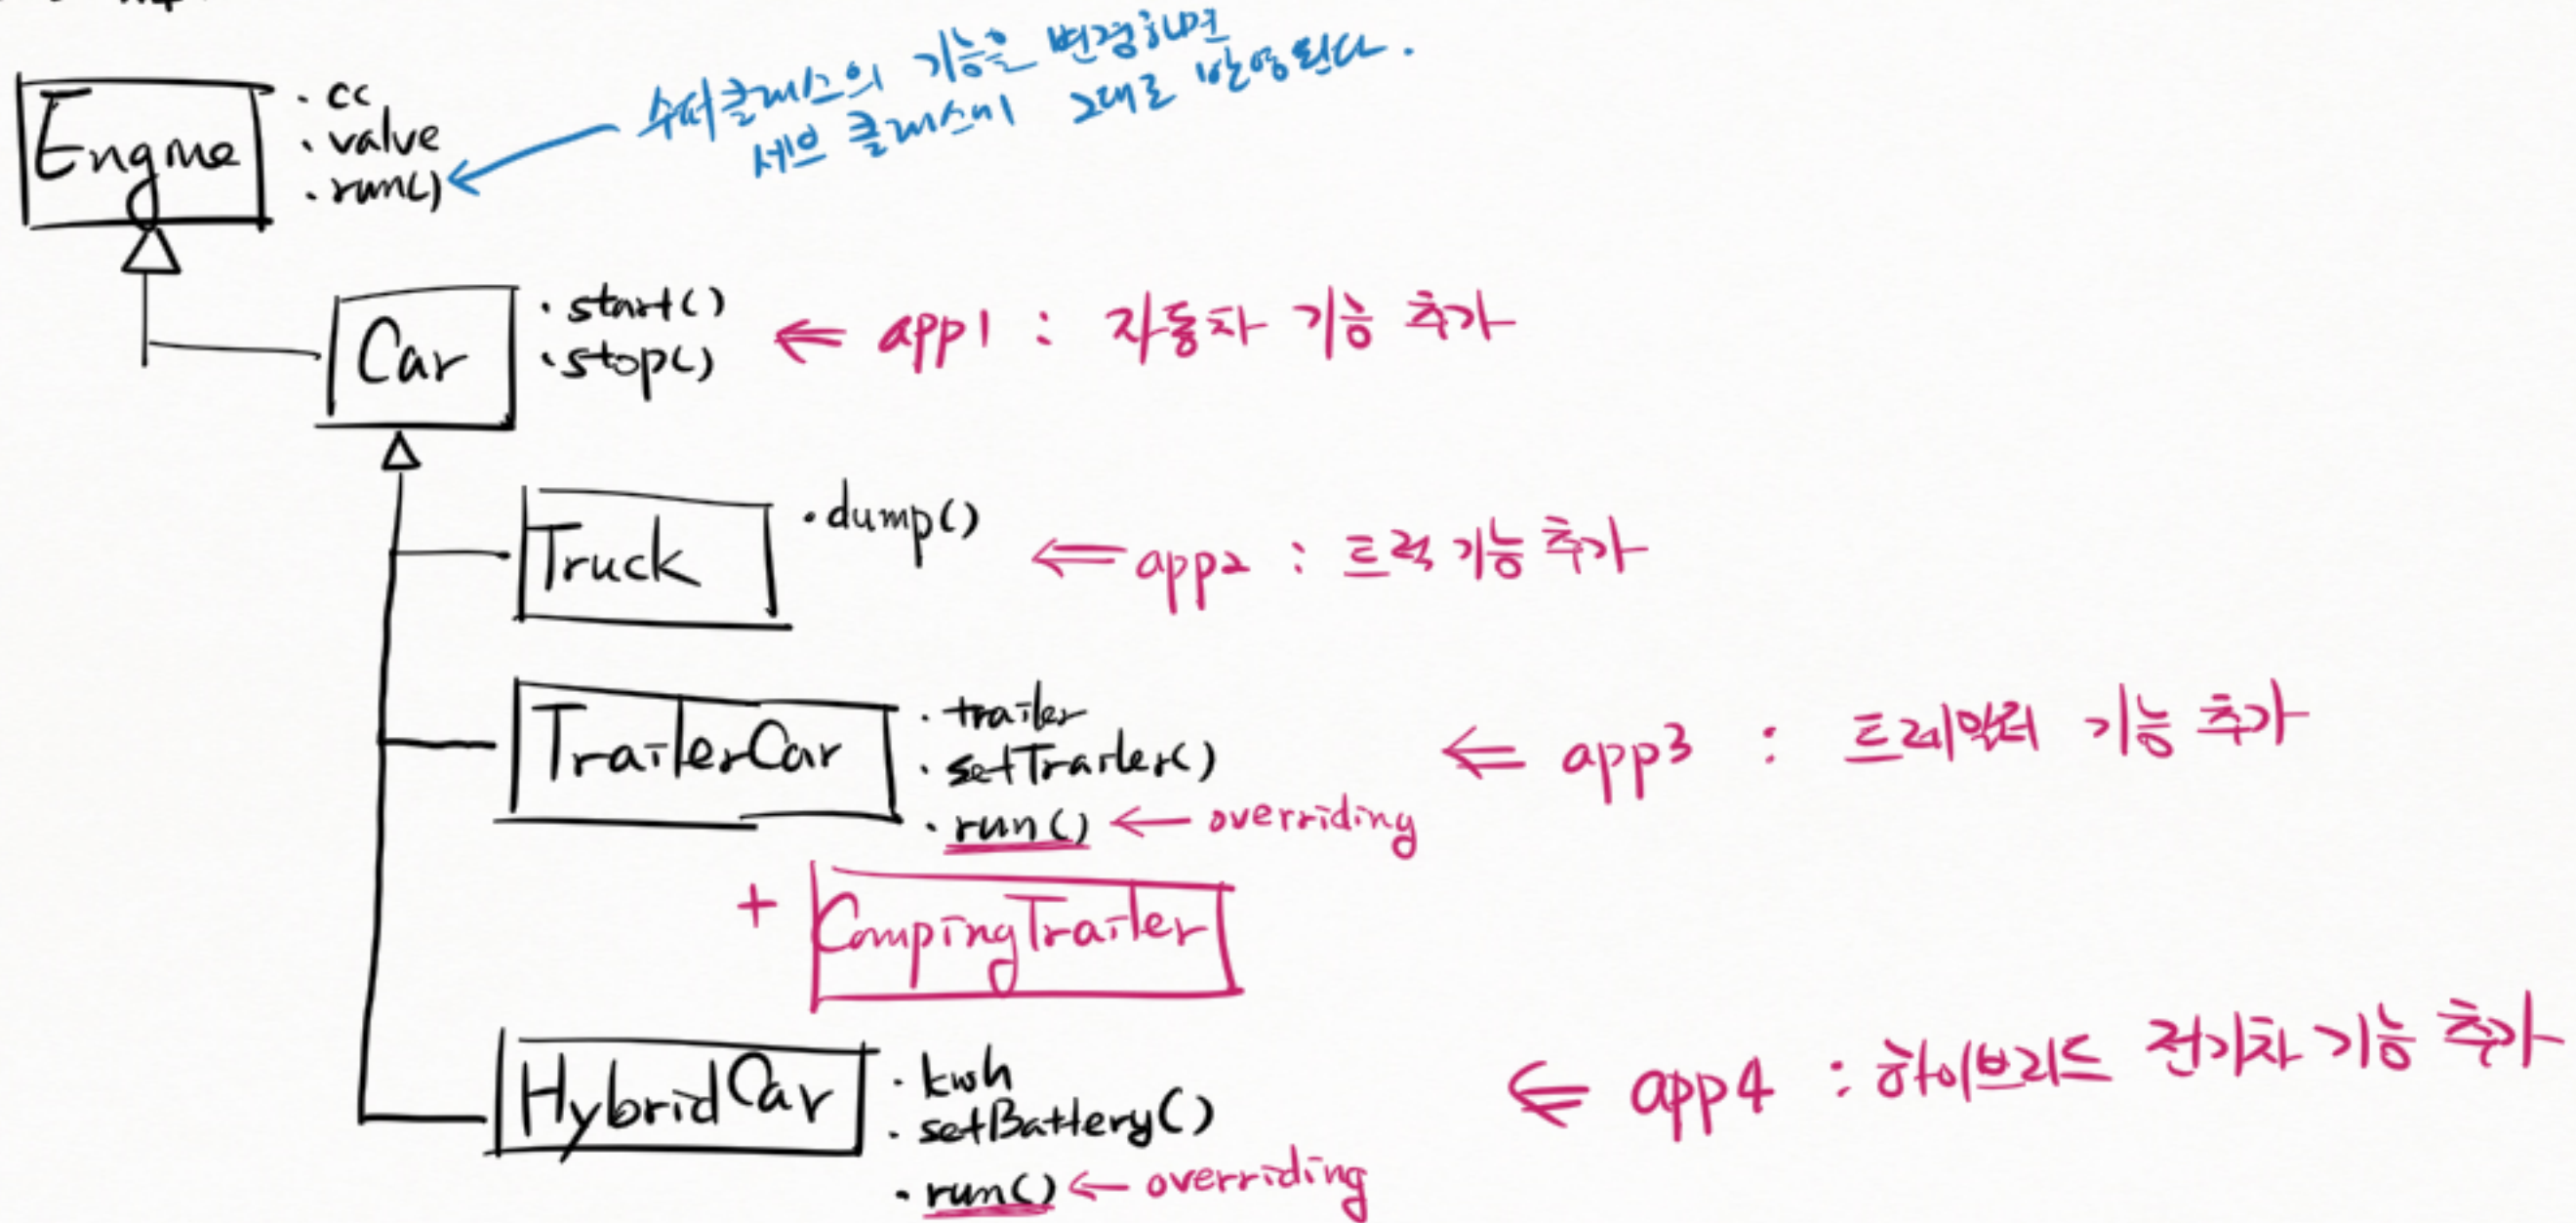 Engine
· cc
· valve
· run()
← 수퍼클래스의 기능을 변경하면
세브 클래스에 그대로 반영된다.
Car
· start()
· stop()
⇐ app1 : 자동차 기능 추가
Truck
· dump()
⇐ app2 : 트럭 기능 추가
TrailerCar
· trailer
· setTrailer()
· run() ← overriding
⇐ app3 : 트레일러 기능 추가
+ CampingTrailer
HybridCar
· kwh
· setBattery()
· run() ← overriding
⇐ app4 : 하이브리드 전기차 기능 추가